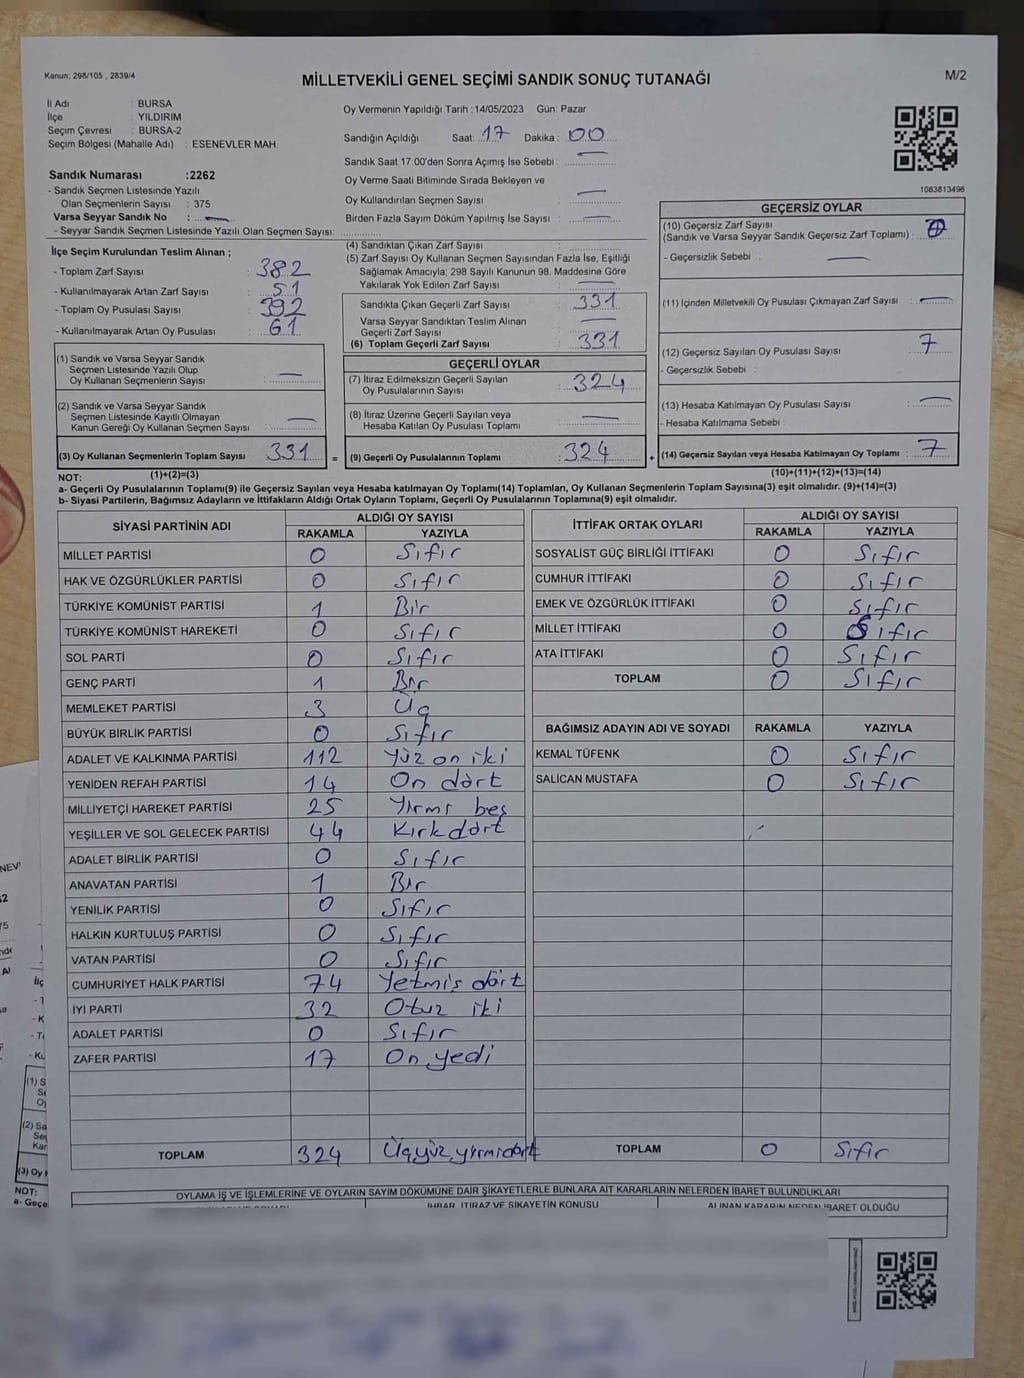 Kanun; 298/105 , 2839/4
MİLLETVEKİLİ GENEL SEÇİMİ SANDIK SONUÇ TUTANAĞI
M/2
İl Adı : BURSA
İlçe : YILDIRIM
Seçim Çevresi : BURSA-2
Seçim Bölgesi (Mahalle Adı) : ESENEVLER MAH.
Sandık Numarası :2262
- Sandık Seçmen Listesinde Yazılı
Olan Seçmenlerin Sayısı : 375
Varsa Seyyar Sandık No : —
- Seyyar Sandık Seçmen Listesinde Yazılı Olan Seçmen Sayısı:
Oy Vermenin Yapıldığı Tarih :14/05/2023 Gün: Pazar
Sandığın Açıldığı Saat: 17 Dakika : 00
Sandık Saat 17:00'den Sonra Açımış İse Sebebi : —
Oy Verme Saati Bitiminde Sırada Bekleyen ve
Oy Kullandırılan Seçmen Sayısı : —
Birden Fazla Sayım Döküm Yapılmış İse Sayısı : —
1083813496
İlçe Seçim Kurulundan Teslim Alınan ;
- Toplam Zarf Sayısı : 382
- Kullanılmayarak Artan Zarf Sayısı : 51
- Toplam Oy Pusulası Sayısı : 392
- Kullanılmayarak Artan Oy Pusulası : 61
(1) Sandık ve Varsa Seyyar Sandık
Seçmen Listesinde Yazılı Olup
Oy Kullanan Seçmenlerin Sayısı : —
(2) Sandık ve Varsa Seyyar Sandık
Seçmen Listesinde Kayıtlı Olmayan
Kanun Gereği Oy Kullanan Seçmen Sayısı : —
(3) Oy Kullanan Seçmenlerin Toplam Sayısı : 331
(4) Sandıktan Çıkan Zarf Sayısı :
(5) Zarf Sayısı Oy Kullanan Seçmen Sayısından Fazla İse, Eşitliği
Sağlamak Amacıyla; 298 Sayılı Kanunun 98. Maddesine Göre
Yakılarak Yok Edilen Zarf Sayısı : —
Sandıkta Çıkan Geçerli Zarf Sayısı : 331
Varsa Seyyar Sandıktan Teslim Alınan
Geçerli Zarf Sayısı : —
(6) Toplam Geçerli Zarf Sayısı : 331
GEÇERLİ OYLAR
(7) İtiraz Edilmeksizin Geçerli Sayılan
Oy Pusulalarının Sayısı : 324
(8) İtiraz Üzerine Geçerli Sayılan veya
Hesaba Katılan Oy Pusulası Toplamı : —
= (9) Geçerli Oy Pusulalarının Toplamı : 324
GEÇERSİZ OYLAR
(10) Geçersiz Zarf Sayısı
(Sandık ve Varsa Seyyar Sandık Geçersiz Zarf Toplamı) :
- Geçersizlik Sebebi : —
(11) İçinden Milletvekili Oy Pusulası Çıkmayan Zarf Sayısı : —
(12) Geçersiz Sayılan Oy Pusulası Sayısı : 7
- Geçersizlik Sebebi :
(13) Hesaba Katılmayan Oy Pusulası Sayısı : —
- Hesaba Katılmama Sebebi :
+ (14) Geçersiz Sayılan veya Hesaba Katılmayan Oy Toplamı : 7
NOT: (1)+(2)=(3) (10)+(11)+(12)+(13)=(14)
a- Geçerli Oy Pusulalarının Toplamı(9) ile Geçersiz Sayılan veya Hesaba katılmayan Oy Toplamı(14) Toplamları, Oy Kullanan Seçmenlerin Toplam Sayısına(3) eşit olmalıdır. (9)+(14)=(3)
b- Siyasi Partilerin, Bağımsız Adayların ve İttifakların Aldığı Ortak Oyların Toplamı, Geçerli Oy Pusulalarının Toplamına(9) eşit olmalıdır.
SİYASİ PARTİNİN ADI ALDIĞI OY SAYISI
RAKAMLA YAZIYLA
MİLLET PARTİSİ 0 Sıfır
HAK VE ÖZGÜRLÜKLER PARTİSİ 0 Sıfır
TÜRKİYE KOMÜNİST PARTİSİ 1 Bir
TÜRKİYE KOMÜNİST HAREKETİ 0 Sıfır
SOL PARTİ 0 Sıfır
GENÇ PARTİ 1 Bir
MEMLEKET PARTİSİ 3 Üç
BÜYÜK BİRLİK PARTİSİ 0 Sıfır
ADALET VE KALKINMA PARTİSİ 112 Yüz on iki
YENİDEN REFAH PARTİSİ 14 On dört
MİLLİYETÇİ HAREKET PARTİSİ 25 Yirmi beş
YEŞİLLER VE SOL GELECEK PARTİSİ 44 Kırk dört
ADALET BİRLİK PARTİSİ 0 Sıfır
ANAVATAN PARTİSİ 1 Bir
YENİLİK PARTİSİ 0 Sıfır
HALKIN KURTULUŞ PARTİSİ 0 Sıfır
VATAN PARTİSİ 0 Sıfır
CUMHURİYET HALK PARTİSİ 74 Yetmiş dört
İYİ PARTİ 32 Otuz iki
ADALET PARTİSİ 0 Sıfır
ZAFER PARTİSİ 17 On yedi
TOPLAM 324 Üçyüz yirmi dört
İTTİFAK ORTAK OYLARI ALDIĞI OY SAYISI
RAKAMLA YAZIYLA
SOSYALİST GÜÇ BİRLİĞİ İTTİFAKI 0 Sıfır
CUMHUR İTTİFAKI 0 Sıfır
EMEK VE ÖZGÜRLÜK İTTİFAKI 0 Sıfır
MİLLET İTTİFAKI 0 Sıfır
ATA İTTİFAKI 0 Sıfır
TOPLAM 0 Sıfır
BAĞIMSIZ ADAYIN ADI VE SOYADI RAKAMLA YAZIYLA
KEMAL TÜFENK 0 Sıfır
SALİCAN MUSTAFA 0 Sıfır
TOPLAM 0 Sıfır
OYLAMA İŞ VE İŞLEMLERİNE VE OYLARIN SAYIM DÖKÜMÜNE DAİR ŞİKAYETLERLE BUNLARA AİT KARARLARIN NELERDEN İBARET BULUNDUKLARI
İHBAR, İTİRAZ VE ŞİKAYETİN KONUSU
ALINAN KARARIN NEDEN İBARET OLDUĞU